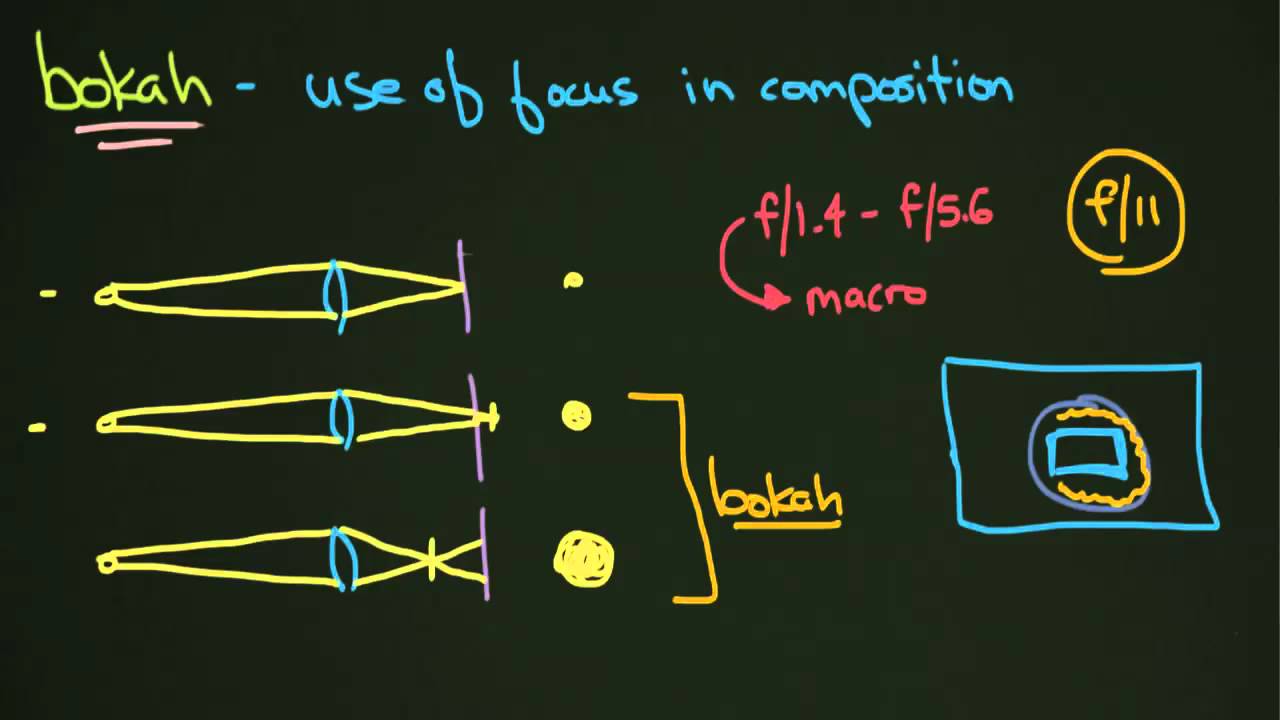 bokah - use of focus in composition
f/1.4 - f/5.6
f/11
macro
bokah